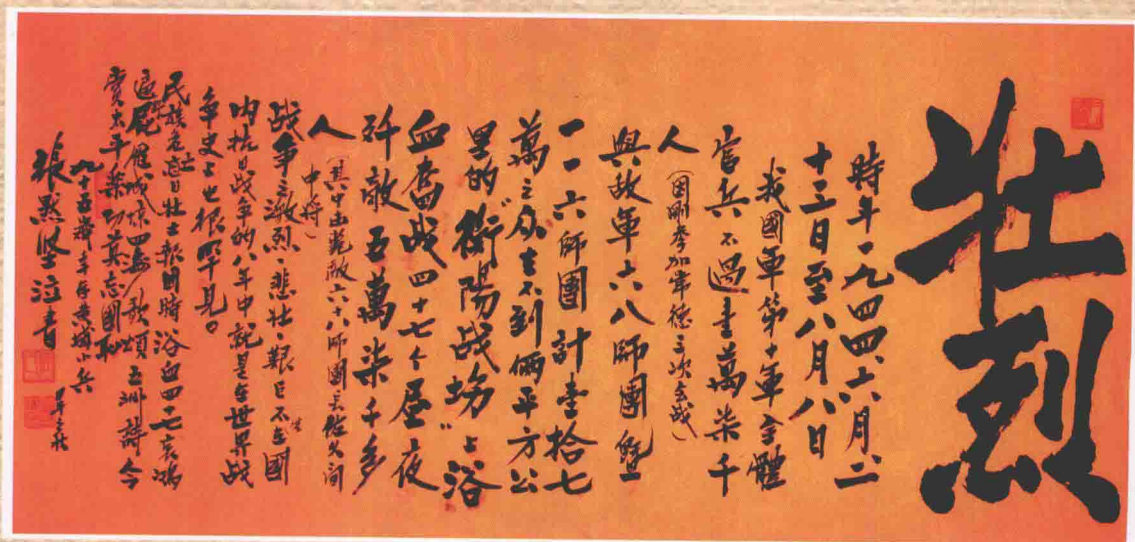 壮烈
時年一九四四、六月、二
十三日至八月八日
我國軍第十軍全體
官兵不過壹萬柒千
人(因剛參加常德之次会战)
與敌軍六八師團暨
一一六師團計壹拾七
萬之众在不到倆平方公
里的"衡陽战場"上浴
血奮战四十七个昼夜
歼敵五萬柒千多
人(其中击毙敵六十八師團長佐久间
中將)
战争之激烈、悲壮、艰巨不至國
内抗日战争的八年中就是在世界战
争史上也很罕见。
民族危忘日壮士報國時浴血四七哀鴻
遍尸堆城
歌頌五洲 今
太平 功莫忘國耻
九十五歲 守 城小兵
張 坚泣書